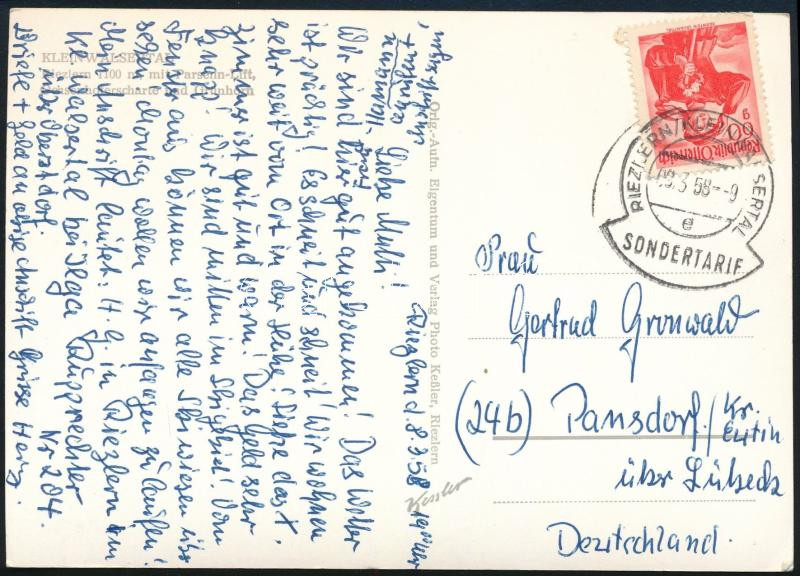 KLEINWALSERTAL
Riezlern 1100 m, mit Parsenn-Lift,
Ochsenhoferscharte und Grünhorn
Orig.-Aufn. Eigentum und Verlag Photo Keßler, Riezlern
Kessler
Riezlern d. 8.3.58
Liebe Mutti!
Wir sind hier gut angekommen! Das Wetter
ist prächtig! Es schneit und schneit! Wir wohnen
sehr weit vom Ort in der Höhe! Siehe das X.
Zimmer ist gut und warm! Das Geld sehr
knapp! Wir sind mitten im Skigebiet! Vom
Fenster aus können wir alle Skiwiesen über
sehen. Montag wollen wir anfangen zu laufen!
Mein Anschrift lautet: H. G. in Riezlern im
Kl. walsertal bei Ilga Rupprechter
über Oberstdorf Nr 204.
Briefe + Geld an diese Anschrift Grüsse Hans.
Republik Österreich
60 g
RIEZLERN/KLEINWALSERTAL
8.3.58--9
e
SONDERTARIF
Frau
Gertrud Gronwald
(24b) Pansdorf/Kr. Eutin
über Lübeck
Deutschland.